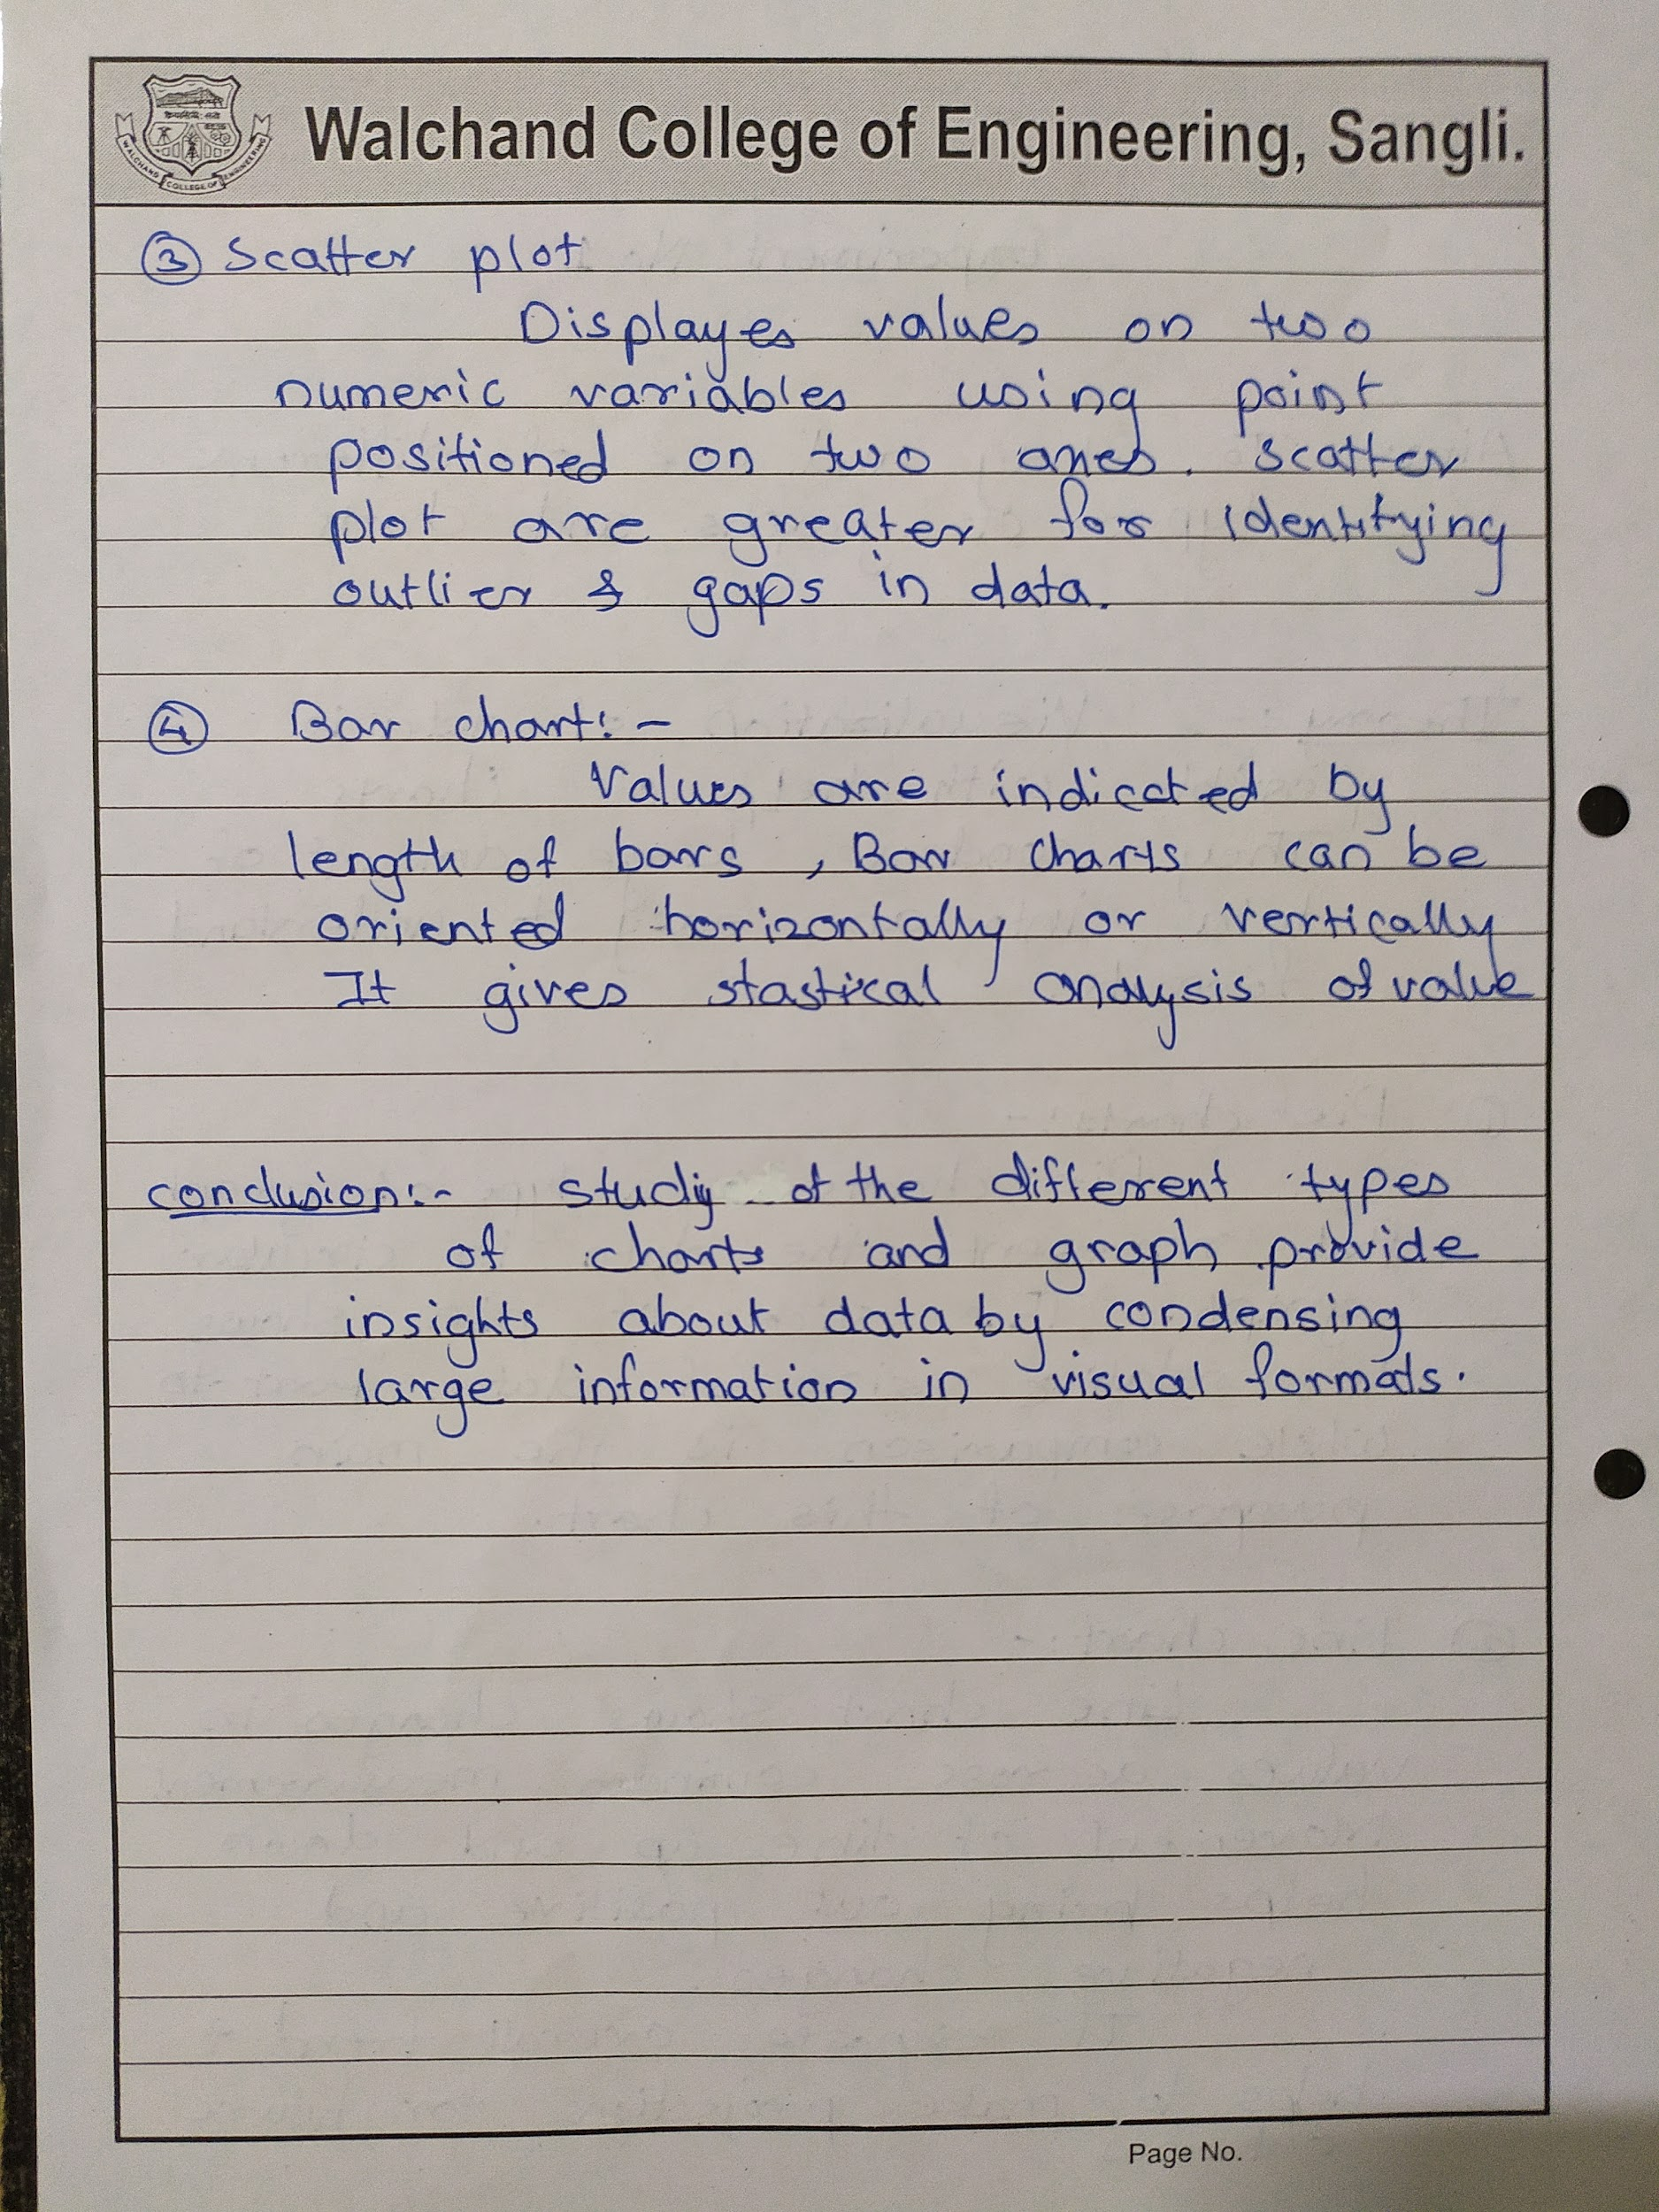 Walchand College of Engineering, Sangli.
WALCHAND COLLEGE OF ENGINEERING
③ Scatter plot
Displayes values on two
numeric variables using point
positioned on two axes. scatter
plot are greater for identifying
outlier & gaps in data.
④ Bar chart:-
Values are indicated by
length of bars, Bar charts can be
oriented horizontally or vertically
It gives stastical analysis of value
conclusion:- study of the different types
of charts and graph provide
insights about data by condensing
large information in visual formats.
Page No.